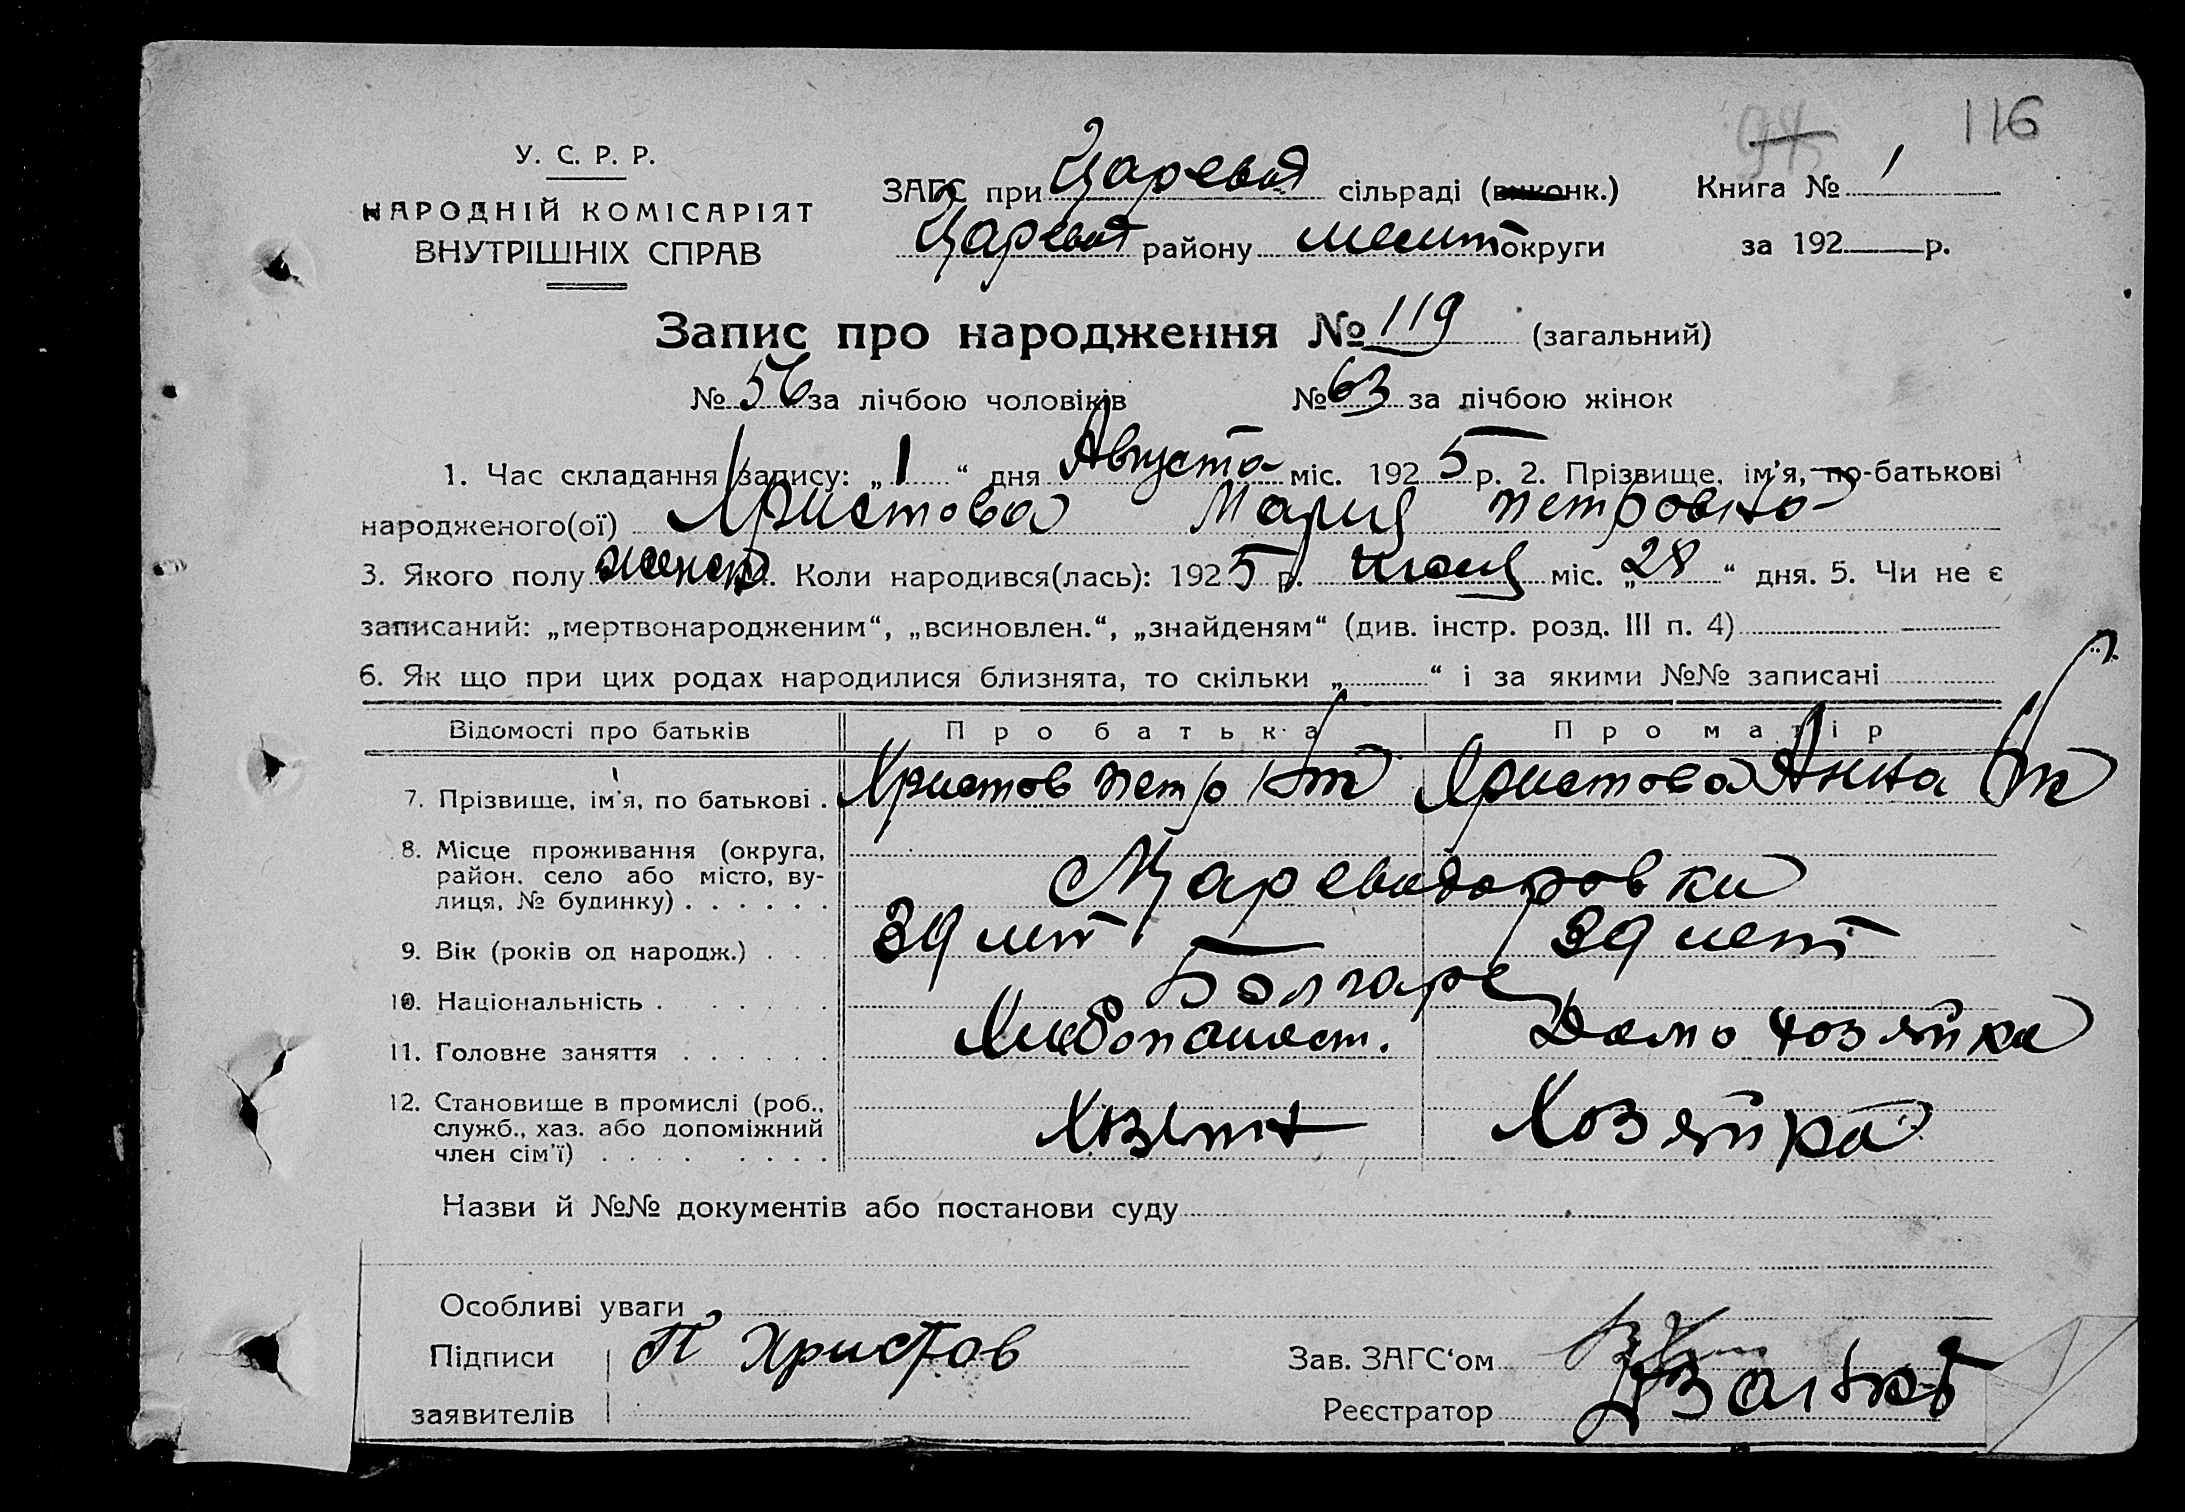 94 116
У. С. Р. Р.
НАРОДНІЙ КОМІСАРІЯТ
ВНУТРІШНІХ СПРАВ
ЗАГС при Царевод сільраді (виконк.) Книга № 1
Царевод району Мелит округи за 192 р.
Запис про народження № 119 (загальний)
№ 56 за лічбою чоловіків № 63 за лічбою жінок
1. Час складання запису: „1“ дня Августа міс. 1925 р. 2. Прізвище, ім'я, по-батькові
народженого(ої) Христова Мария Петровна
3. Якого полу женск. Коли народився(лась): 1925 р. Июля міс. „28“ дня. 5. Чи не є
записаний: „мертвонародженим“, „всиновлен.“, „знайденям“ (див. інстр. розд. III п. 4)
6. Як що при цих родах народилися близнята, то скільки „ “ і за якими №№ записані
Відомості про батьків Про батька Про матір
7. Прізвище, ім'я, по батькові . Христов Петр Христова Анна
8. Місце проживання (округа,
район, село або місто, ву-
лиця, № будинку) . . . . . .
9. Вік (років од народж.) . . . 39 лет 39 лет
10. Національність . . . . . Болгаре
11. Головне заняття . . . . . . Хлебопашест. Домохозяйка
12. Становище в промислі (роб.,
служб., хаз. або допоміжний
член сім'ї) . . . . . . . . Хозяин Хозяйка
Назви й №№ документів або постанови суду
Особливі уваги
Підписи П Христов Зав. ЗАГС‘ом
заявителів Реєстратор